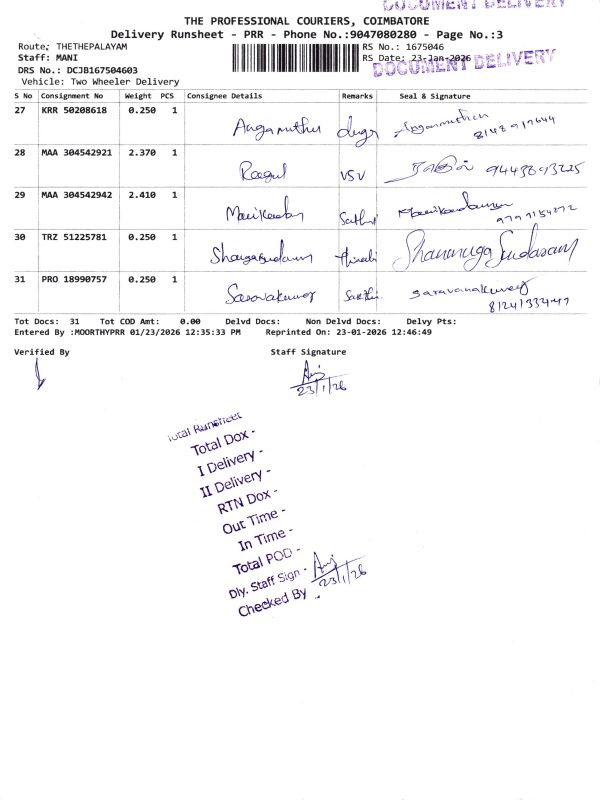 DOCUMENT DELIVERY
THE PROFESSIONAL COURIERS, COIMBATORE
Delivery Runsheet - PRR - Phone No.:9047080280 - Page No.:3
Route: THETHEPALAYAM RS No.: 1675046
Staff: MANI RS Date: 23-Jan-2026
DOCUMENT DELIVERY
DRS No.: DCJB167504603
Vehicle: Two Wheeler Delivery
S No Consignment No Weight PCS Consignee Details Remarks Seal & Signature
27 KRR 50208618 0.250 1 Angamuthu Angamuthu
28 MAA 304542921 2.370 1 Ragul VSV ராகுல்
29 MAA 304542942 2.410 1 Manikandan Manikandan
30 TRZ 51225781 0.250 1 Shanmugasundaram Shanmuga Sundaram
31 PRO 18990757 0.250 1 Saravanakumar Saravanakumar
8124133447
Tot Docs: 31 Tot COD Amt: 0.00 Delvd Docs: Non Delvd Docs: Delvy Pts:
Entered By :MOORTHYPRR 01/23/2026 12:35:33 PM Reprinted On: 23-01-2026 12:46:49
Verified By Staff Signature
23/1/26
Total Runsheet
Total Dox -
I Delivery -
II Delivery -
RTN Dox -
Out Time -
In Time -
Total POD -
Dly. Staff Sign - 23/1/26
Checked By